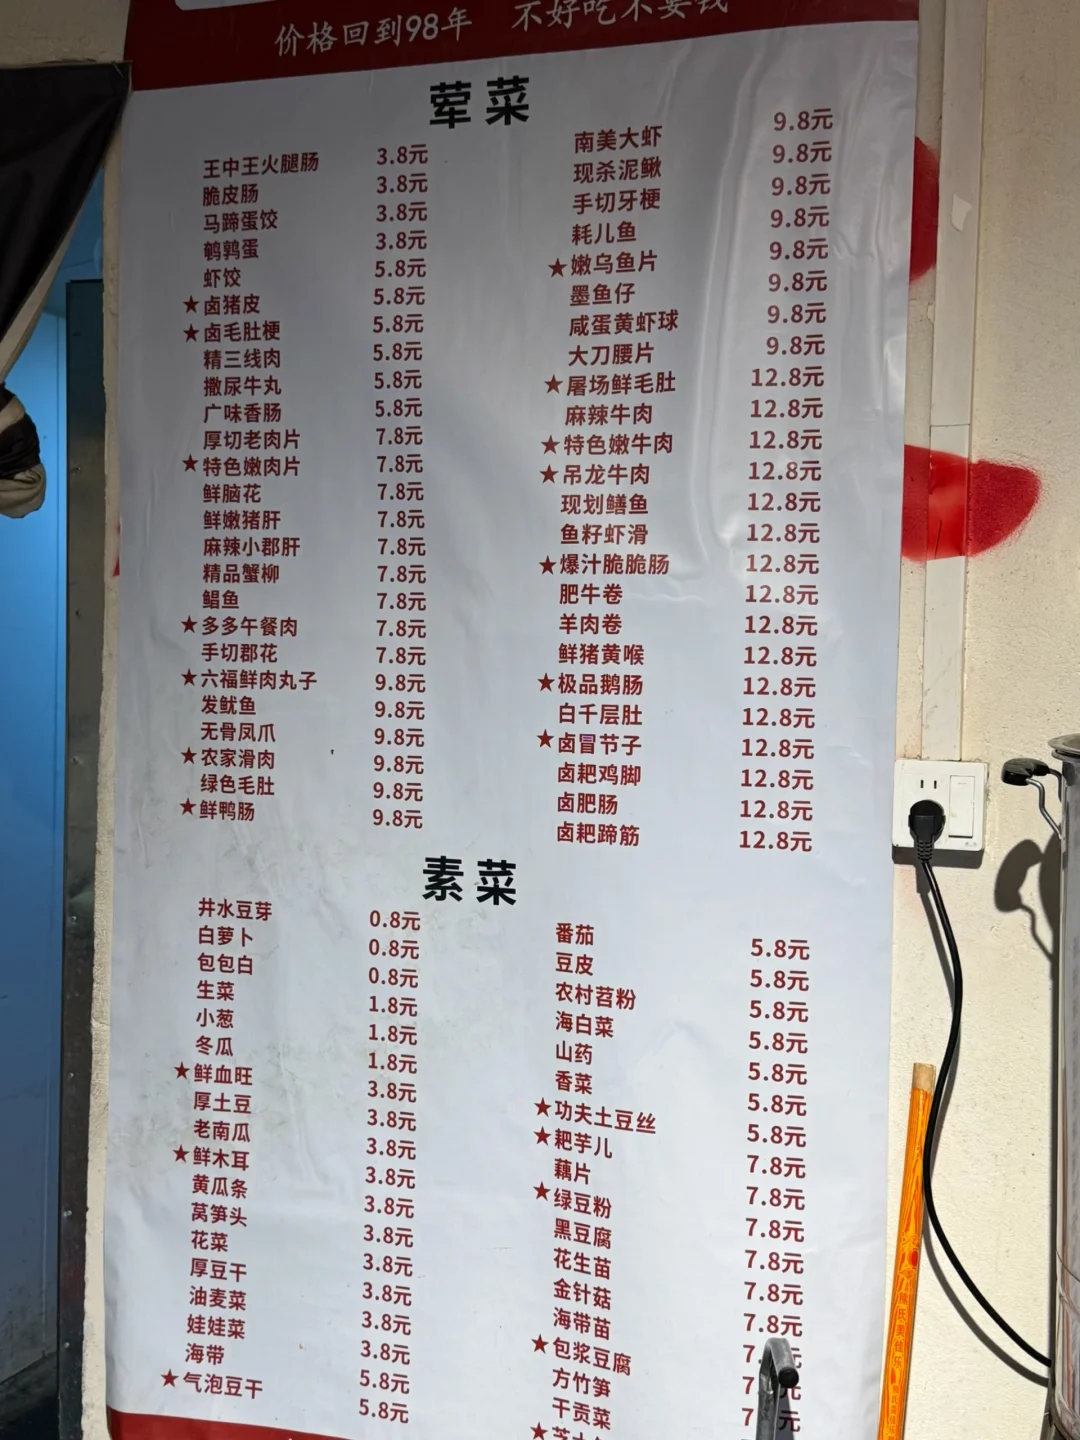 价格回到98年 不好吃不要钱
荤菜
王中王火腿肠 3.8元
脆皮肠 3.8元
马蹄蛋饺 3.8元
鹌鹑蛋 3.8元
虾饺 5.8元
★卤猪皮 5.8元
★卤毛肚梗 5.8元
精三线肉 5.8元
撒尿牛丸 5.8元
广味香肠 5.8元
厚切老肉片 7.8元
★特色嫩肉片 7.8元
鲜脑花 7.8元
鲜嫩猪肝 7.8元
麻辣小郡肝 7.8元
精品蟹柳 7.8元
鲳鱼 7.8元
★多多午餐肉 7.8元
手切郡花 7.8元
★六福鲜肉丸子 9.8元
发鱿鱼 9.8元
无骨凤爪 9.8元
★农家滑肉 9.8元
绿色毛肚 9.8元
★鲜鸭肠 9.8元
南美大虾 9.8元
现杀泥鳅 9.8元
手切牙梗 9.8元
耗儿鱼 9.8元
★嫩乌鱼片 9.8元
墨鱼仔 9.8元
咸蛋黄虾球 9.8元
大刀腰片 9.8元
★屠场鲜毛肚 12.8元
麻辣牛肉 12.8元
★特色嫩牛肉 12.8元
★吊龙牛肉 12.8元
现划鳝鱼 12.8元
鱼籽虾滑 12.8元
★爆汁脆脆肠 12.8元
肥牛卷 12.8元
羊肉卷 12.8元
鲜猪黄喉 12.8元
★极品鹅肠 12.8元
白千层肚 12.8元
★卤冒节子 12.8元
卤耙鸡脚 12.8元
卤肥肠 12.8元
卤耙蹄筋 12.8元
素菜
井水豆芽 0.8元
白萝卜 0.8元
包包白 0.8元
生菜 1.8元
小葱 1.8元
冬瓜 1.8元
★鲜血旺 3.8元
厚土豆 3.8元
老南瓜 3.8元
★鲜木耳 3.8元
黄瓜条 3.8元
莴笋头 3.8元
花菜 3.8元
厚豆干 3.8元
油麦菜 3.8元
娃娃菜 3.8元
海带 5.8元
★气泡豆干 5.8元
番茄 5.8元
豆皮 5.8元
农村苕粉 5.8元
海白菜 5.8元
山药 5.8元
香菜 5.8元
★功夫土豆丝 5.8元
★耙芋儿 7.8元
藕片 7.8元
★绿豆粉 7.8元
黑豆腐 7.8元
花生苗 7.8元
金针菇 7.8元
海带苗 7.元
★包浆豆腐 7元
方竹笋 7元
干贡菜